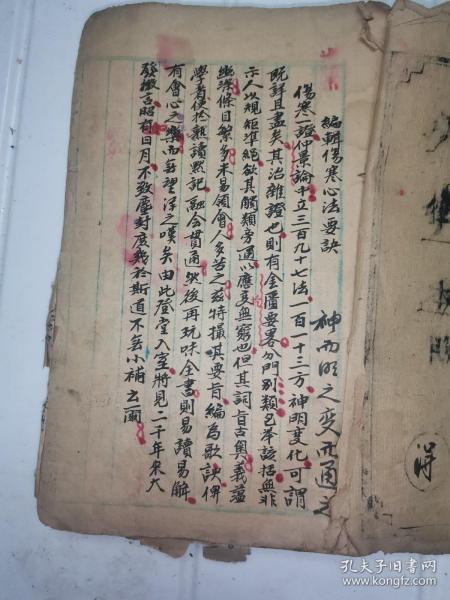 編輯傷寒心法要訣
神而明之變而通之
傷寒一證仲景論中立三百九十七法一百一十三方神明變化可謂
既詳且盡矣其治雜證也則有金匱要畧分門別類包举該括無非
示人以規矩準繩欲其觸類旁通以應変無窮也但其詞旨古奧義蘊
幽深條目繁多未易領會人多苦之茲特撮其要旨編為歌訣俾
學者便於熟讀默記融会貫通然後再玩味全書則易讀易解
有會心之樂而無望洋之嘆矣由此登堂入室將見二千年來大
發撤古昭有日月不致塵封庶幾於斯道不無小補云爾
得
孔夫子旧书网
www.kongfz.com